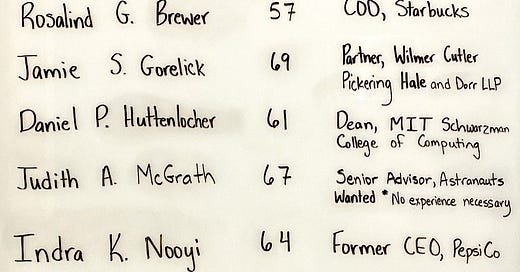 Rosalind G. Brewer 57 COO, Starbucks
Jamie S. Gorelick 69 Partner, Wilmer Cutler
Pickering Hale and Dorr LLP
Daniel P. Huttenlocher 61 Dean, MIT Schwarzman
College of Computing
Judith A. McGrath 67 Senior Advisor, Astronauts
Wanted *No experience necessary
Indra K. Nooyi 64 Former CEO, PepsiCo